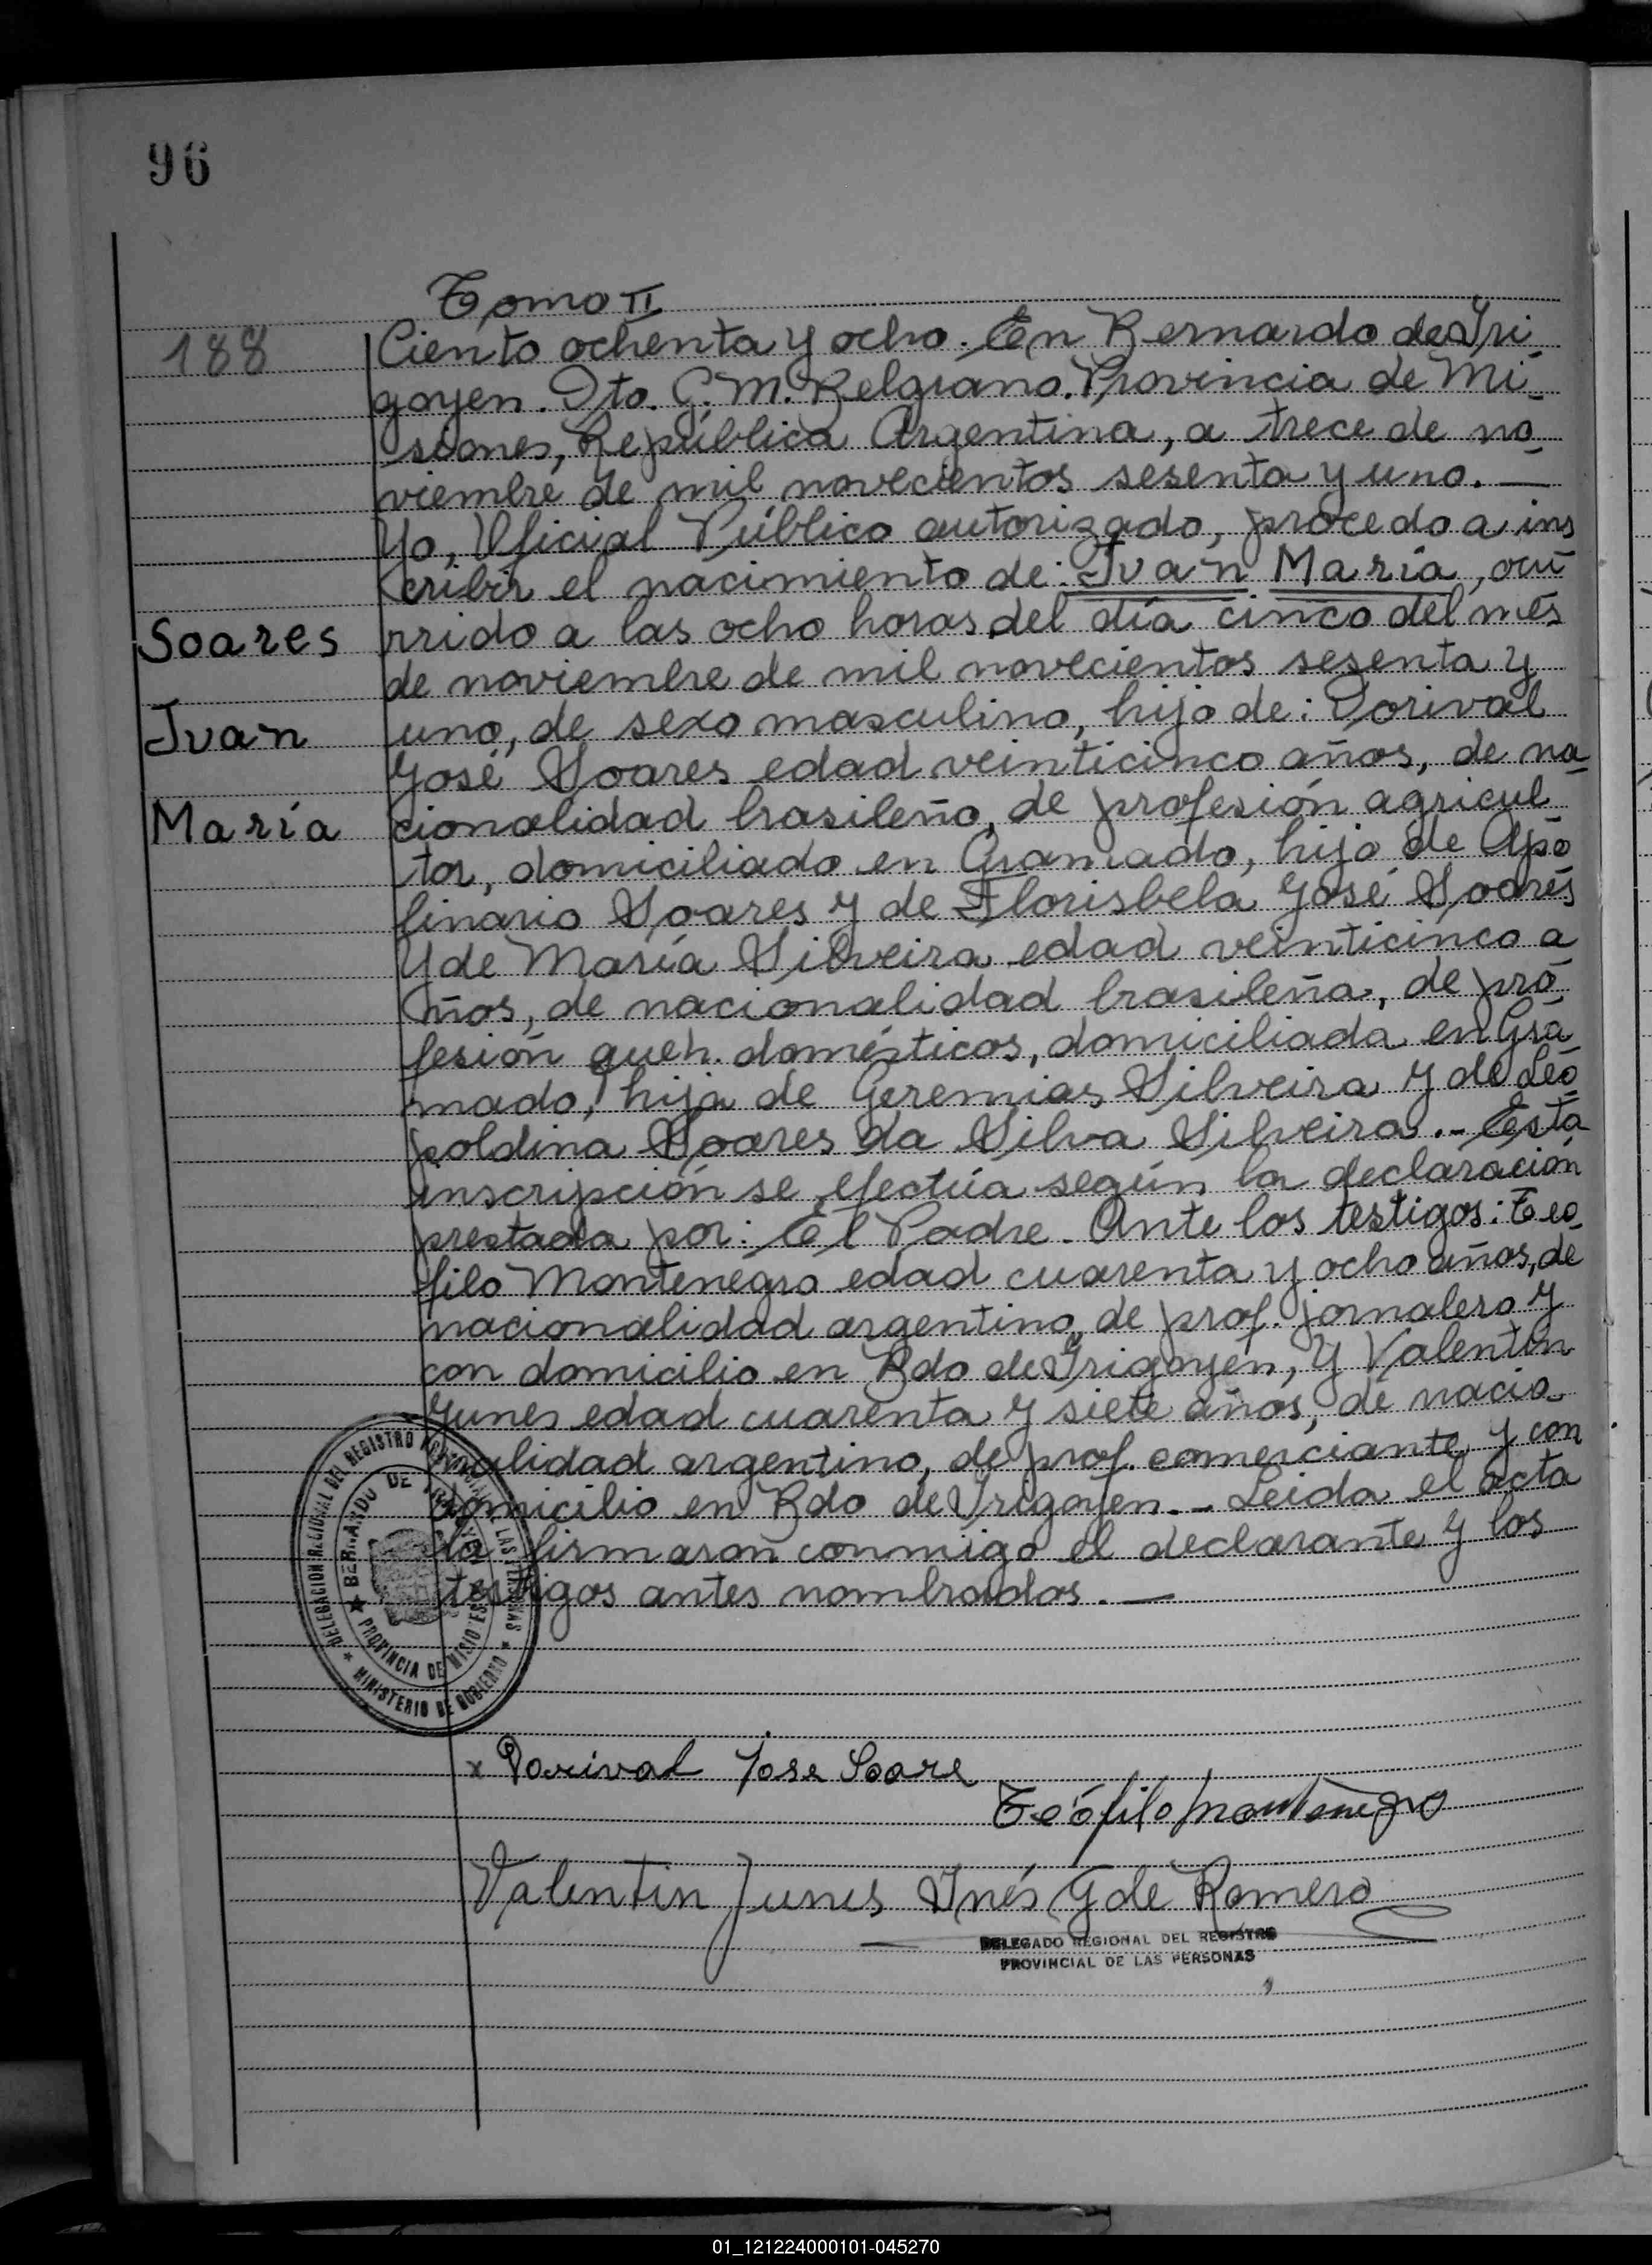 96
Tomo II
188
Ciento ochenta y ocho. En Bernardo de Iri
goyen. Dto. G. M. Belgrano. Provincia de Mi
siones, República Argentina, a trece de no
viembre de mil novecientos sesenta y uno. —
Yo, Oficial Público autorizado, procedo a ins
cribir el nacimiento de: Juan María, ocu
Soares
rrido a las ocho horas del día cinco del mes
de noviembre de mil novecientos sesenta y
Juan
uno, de sexo masculino, hijo de: Dorival
José Soares edad veinticinco años, de na
María
cionalidad brasileño, de profesión agricul
tor, domiciliado en Gramado, hijo de Apo
linario Soares y de Florisbela José Soares
Y de María Silveira edad veinticinco a
ños, de nacionalidad brasileña, de pro
fesión queh. domésticos, domiciliada en Gra
mado, hija de Geremias Silveira y de Leo
poldina Soares da Silva Silveira. - Esta
inscripción se efectúa según la declaración
prestada por: El Padre. Ante los testigos: Teo
filo Montenegro edad cuarenta y ocho años, de
nacionalidad argentino, de prof. jornalero y
con domicilio en Bdo de Irigoyen, Y Valentin
Junes edad cuarenta y siete años, de nacio
nalidad argentino, de prof. comerciante y con
domicilio en Bdo de Irigoyen. - Leida el acta
la firmaron conmigo el declarante y los
testigos antes nombrados. —
DELEGACION REGIONAL DEL REGISTRO PROVINCIAL DE LAS PERSONAS
★ BERNARDO DE IRIGOYEN ★
PROVINCIA DE MISIONES
★ MINISTERIO DE GOBIERNO ★
x Dorival Jose Soare
Teófilo Montenegro
Valentin Junes Inés G de Romero
DELEGADO REGIONAL DEL REGISTRO
PROVINCIAL DE LAS PERSONAS
01_121224000101-045270